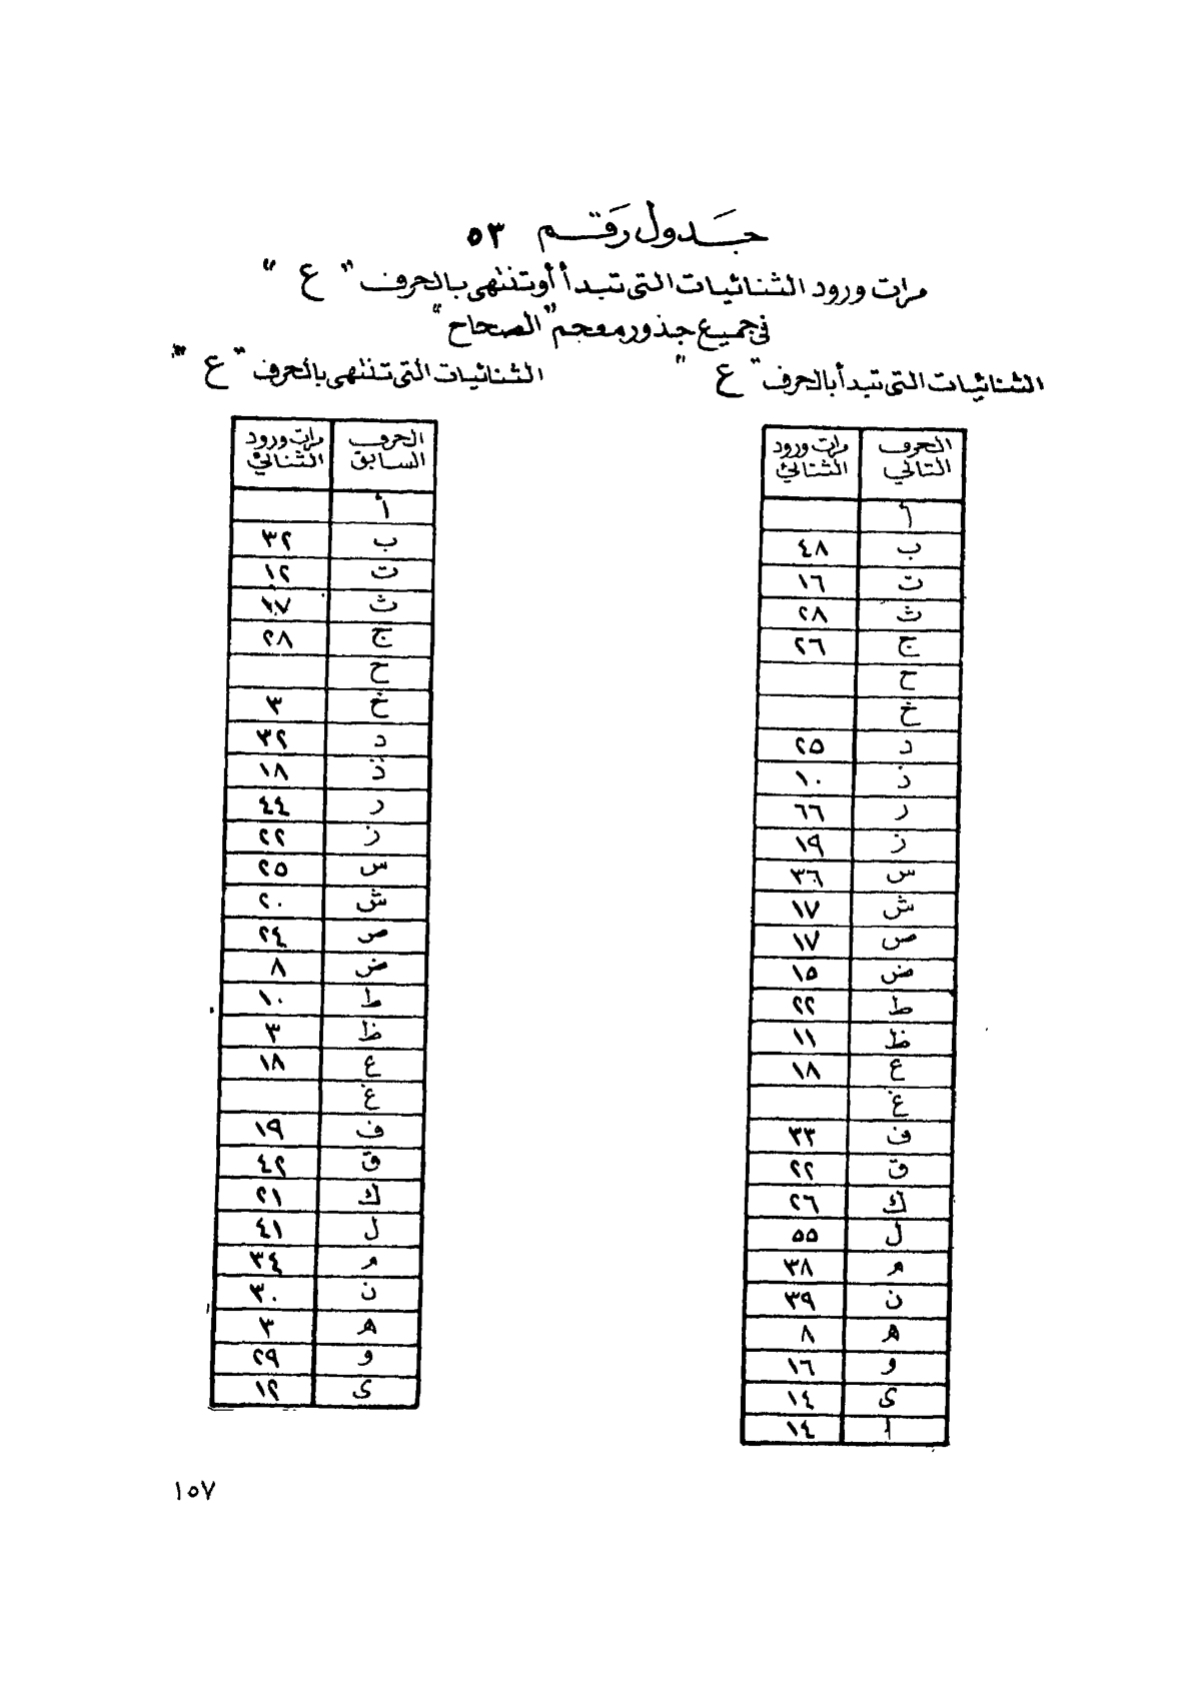 جَدول رَقم ٥٣
مرات ورود الثنائيات التى تبدأ أو تنتهى بالحرف " ع "
فى جميع جذور معجم "الصحاح"
الثنائيات التى تبدأ بالحرف " ع "
الحرف التالي | مرات ورود الثنائي
أ
ب ٤٨
ت ١٦
ث ٢٨
ج ٢٦
ح
خ
د ٢٥
ذ ١٠
ر ٦٦
ز ١٩
س ٣٦
ش ١٧
ص ١٧
ض ١٥
ط ٢٢
ظ ١١
ع ١٨
غ
ف ٣٣
ق ٢٢
ك ٢٦
ل ٥٥
م ٣٨
ن ٣٩
ه ٨
و ١٦
ى ١٤
ا ١٤
الثنائيات التى تنتهى بالحرف " ع "
الحرف السابق | مرات ورود الثنائي
أ
ب ٣٢
ت ١٢
ث ١٧
ج ٢٨
ح
خ ٣
د ٣٢
ذ ١٨
ر ٤٤
ز ٢٢
س ٢٥
ش ٢٠
ص ٢٤
ض ٨
ط ١٠
ظ ٣
ع ١٨
غ
ف ١٩
ق ٤٢
ك ٢١
ل ٤١
م ٣٤
ن ٣٠
ه ٣
و ٢٩
ى ١٢
١٥٧